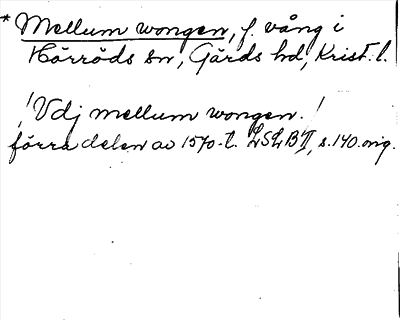 * Mellum wongen, f. vång i
Hörröds sn, Gärds hd, Krist. l.
! Vdj mellum wongen. !
förra delen av 1570-t. LSLB II, s. 140. orig.